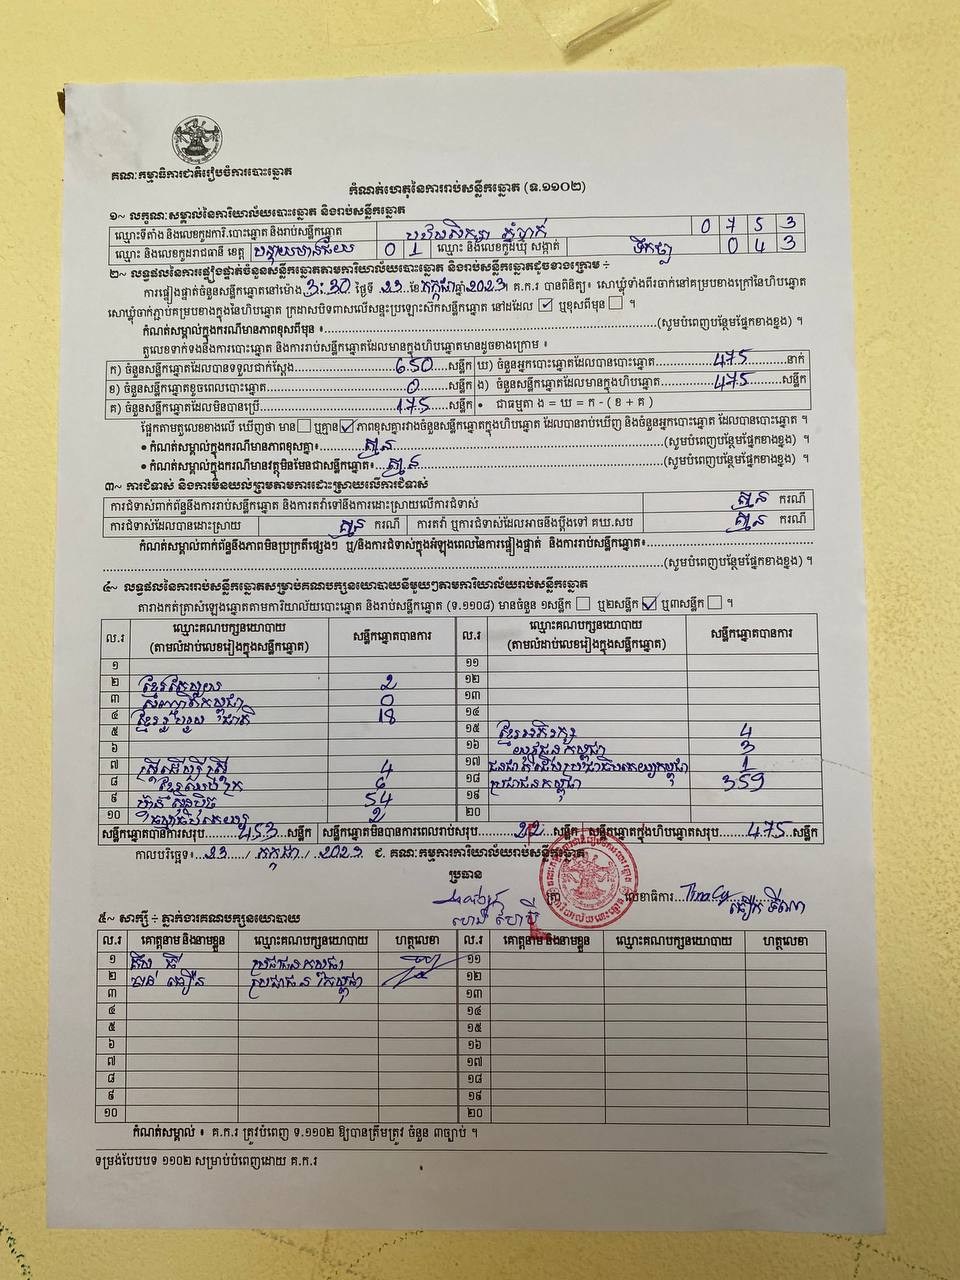 គណៈកម្មាធិការជាតិរៀបចំការបោះឆ្នោត
កំណត់ហេតុនៃការរាប់សន្លឹកឆ្នោត (ទ.១១០២)
១~ លក្ខណៈសម្គាល់នៃការិយាល័យបោះឆ្នោត និងរាប់សន្លឹកឆ្នោត
ឈ្មោះទីតាំង និងលេខកូដការិ.បោះឆ្នោត និងរាប់សន្លឹកឆ្នោត 0 7 5 3
ឈ្មោះ និងលេខកូដរាជធានី ខេត្ត បន្ទាយមានជ័យ 0 1 ឈ្មោះ និងលេខកូដឃុំ សង្កាត់ ទឹកថ្លា 0 4 3
២~ លទ្ធផលនៃការផ្ទៀងផ្ទាត់ចំនួនសន្លឹកឆ្នោតតាមការិយាល័យបោះឆ្នោត និងរាប់សន្លឹកឆ្នោតដូចខាងក្រោម ÷
ការផ្ទៀងផ្ទាត់ចំនួនសន្លឹកឆ្នោតនៅម៉ោង 3:30 ថ្ងៃទី 23 ខែ កក្កដា ឆ្នាំ 2023 ។ គ.ក.រ បានពិនិត្យ ៖ សោឃ្លុំទាំងពីរចាក់នៅគម្របខាងក្រៅនៃហិបឆ្នោត
សោឃ្លុំចាក់ភ្ជាប់គម្របខាងក្នុងនៃហិបឆ្នោត ក្រដាសបិទពាសលើសន្ទះប្រឡោះសិកសន្លឹកឆ្នោត នៅដដែល ☑ ឬខុសពីមុន ☐ ។
កំណត់សម្គាល់ក្នុងករណីមានភាពខុសពីមុន ៖ (សូមបំពេញបន្ថែមផ្នែកខាងខ្នង) ។
តួលេខទាក់ទងនឹងការបោះឆ្នោត និងការរាប់សន្លឹកឆ្នោតដែលមានក្នុងហិបឆ្នោតមានដូចខាងក្រោម ៖
ក) ចំនួនសន្លឹកឆ្នោតដែលបានទទួលជាក់ស្តែង 650 សន្លឹក ឃ) ចំនួនអ្នកបោះឆ្នោតដែលបានបោះឆ្នោត 475 នាក់
ខ) ចំនួនសន្លឹកឆ្នោតខូចពេលបោះឆ្នោត 0 សន្លឹក ង) ចំនួនសន្លឹកឆ្នោតដែលមានក្នុងហិបឆ្នោត 475 សន្លឹក
គ) ចំនួនសន្លឹកឆ្នោតដែលមិនបានប្រើ 175 សន្លឹក • ជាធម្មតា ង = ឃ = ក - ( ខ + គ )
ផ្អែកតាមតួលេខខាងលើ ឃើញថា មាន ☐ ឬគ្មាន ☑ ភាពខុសគ្នារវាងចំនួនសន្លឹកឆ្នោតក្នុងហិបឆ្នោត ដែលបានរាប់ឃើញ និងចំនួនអ្នកបោះឆ្នោត ដែលបានបោះឆ្នោត ។
• កំណត់សម្គាល់ក្នុងករណីមានភាពខុសគ្នា៖ គ្មាន (សូមបំពេញបន្ថែមផ្នែកខាងខ្នង) ។
• កំណត់សម្គាល់ក្នុងករណីមានវត្ថុមិនមែនជាសន្លឹកឆ្នោត៖ គ្មាន (សូមបំពេញបន្ថែមផ្នែកខាងខ្នង) ។
៣~ ការជំទាស់ និងការមិនយល់ព្រមតាមការដោះស្រាយលើការជំទាស់
ការជំទាស់ពាក់ព័ន្ធនឹងការរាប់សន្លឹកឆ្នោត និងការតវ៉ាទៅនឹងការដោះស្រាយលើការជំទាស់ គ្មាន ករណី
ការជំទាស់ដែលបានដោះស្រាយ គ្មាន ករណី ការតវ៉ា ឬការជំទាស់ដែលអាចនឹងប្តឹងទៅ គឃ.សប គ្មាន ករណី
កំណត់សម្គាល់ពាក់ព័ន្ធនឹងភាពមិនប្រក្រតីផ្សេងៗ ឬ/និងការជំទាស់ក្នុងអំឡុងពេលនៃការផ្ទៀងផ្ទាត់ និងការរាប់សន្លឹកឆ្នោត៖
(សូមបំពេញបន្ថែមផ្នែកខាងខ្នង) ។
៤~ លទ្ធផលនៃការរាប់សន្លឹកឆ្នោតសម្រាប់គណបក្សនយោបាយនីមួយៗតាមការិយាល័យរាប់សន្លឹកឆ្នោត
តារាងកត់ត្រាសំឡេងឆ្នោតតាមការិយាល័យបោះឆ្នោត និងរាប់សន្លឹកឆ្នោត (ទ.១១០៨) មានចំនួន ១សន្លឹក ☐ ឬ២សន្លឹក ☑ ឬ៣សន្លឹក ☐ ។
ល.រ ឈ្មោះគណបក្សនយោបាយ (តាមលំដាប់លេខរៀងក្នុងសន្លឹកឆ្នោត) សន្លឹកឆ្នោតបានការ ល.រ ឈ្មោះគណបក្សនយោបាយ (តាមលំដាប់លេខរៀងក្នុងសន្លឹកឆ្នោត) សន្លឹកឆ្នោតបានការ
១ ១១
២ 2 ១២
៣ 0 ១៣
៤ ខ្មែររួបរួមជាតិ 18 ១៤
៥ ១៥ ខ្មែរអភិរក្ស 4
៦ ១៦ យុវជនកម្ពុជា 3
៧ 4 ១៧ 1
៨ 6 ១៨ ប្រជាជនកម្ពុជា 359
៩ ហ៊្វុនស៊ិនប៉ិច 54 ១៩
១០ 2 ២០
សន្លឹកឆ្នោតបានការសរុប 453 សន្លឹក សន្លឹកឆ្នោតមិនបានការពេលរាប់សរុប 22 សន្លឹក សន្លឹកឆ្នោតក្នុងហិបឆ្នោតសរុប 475 សន្លឹក
កាលបរិច្ឆេទ៖ 23 / កក្កដា / 2023 ជ. គណៈកម្មការការិយាល័យរាប់សន្លឹកឆ្នោត
ប្រធាន
ត្រា លេខាធិការ
៥~ សាក្សី ÷ ភ្នាក់ងារគណបក្សនយោបាយ
ល.រ គោត្តនាម និងនាមខ្លួន ឈ្មោះគណបក្សនយោបាយ ហត្ថលេខា ល.រ គោត្តនាម និងនាមខ្លួន ឈ្មោះគណបក្សនយោបាយ ហត្ថលេខា
១ ប្រជាជនកម្ពុជា ១១
២ ប្រជាជនកម្ពុជា ១២
៣ ១៣
៤ ១៤
៥ ១៥
៦ ១៦
៧ ១៧
៨ ១៨
៩ ១៩
១០ ២០
កំណត់សម្គាល់ ៖ គ.ក.រ ត្រូវបំពេញ ទ.១១០២ ឱ្យបានត្រឹមត្រូវ ចំនួន ៣ច្បាប់ ។
ទម្រង់បែបបទ ១១០២ សម្រាប់បំពេញដោយ គ.ក.រ